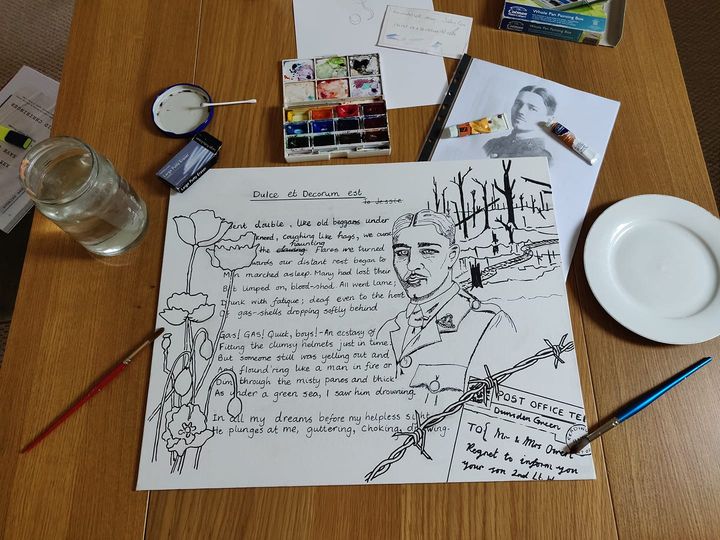 Cotman
Whole Pan Painting Box
Whole Pan Painting Box
Dulce et Decorum est
To Jessie
ent double, like old beggars under
kneed, coughing like hags, we curse
haunting
the Flares we turned
wards our distant rest began to
Men marched asleep. Many had lost their
But limped on, blood-shod. All went lame;
Drunk with fatigue; deaf even to the hoot
Of gas-shells dropping softly behind
Gas! GAS! Quick, boys!-An ecstasy of
Fitting the clumsy helmets just in time
But someone still was yelling out and
And flound'ring like a man in fire or
Dim through the misty panes and thick
As under a green sea, I saw him drowning.
In all my dreams before my helpless sight
He plunges at me, guttering, choking, drowning.
POST OFFICE TE
Dunsden Green
TO{ Mr & Mrs Owen
Regret to inform you
your son 2nd Lt. W